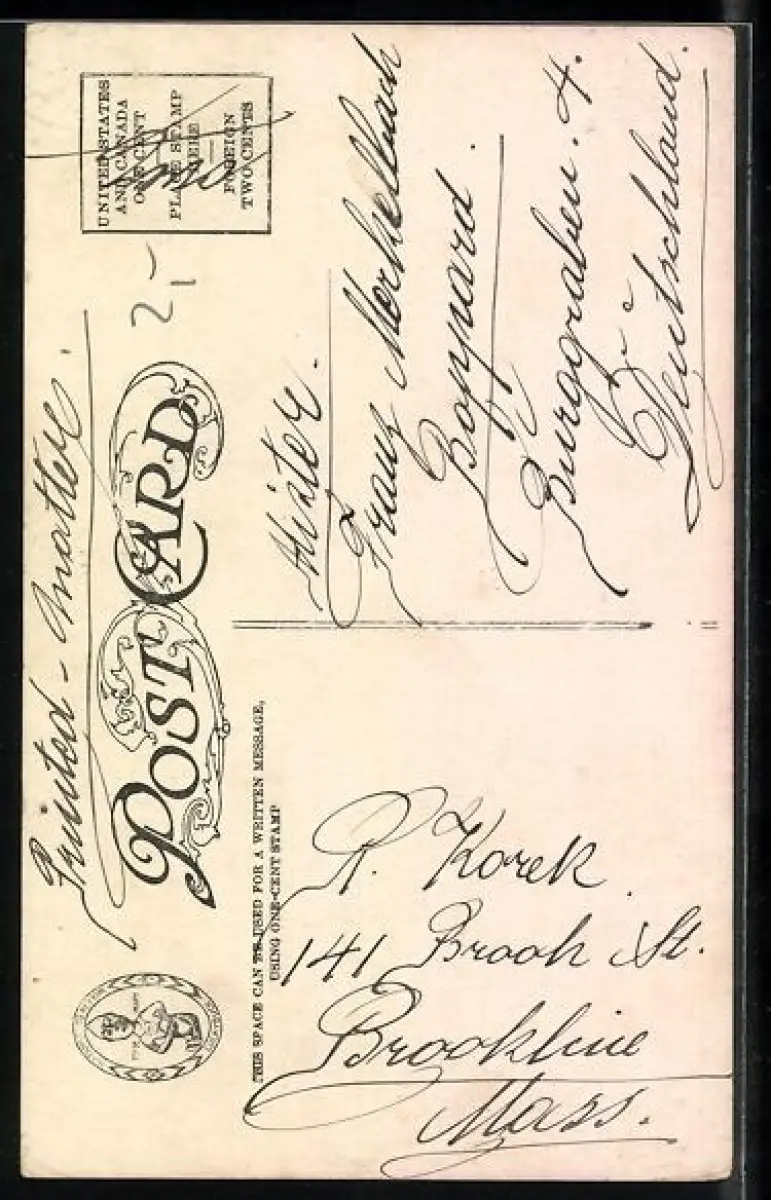 Printed-matter.
POST CARD
UNITED STATES
AND CANADA
ONE CENT
PLACE STAMP
HERE
FOREIGN
TWO CENTS
2,-
THIS SPACE CAN BE USED FOR A WRITTEN MESSAGE,
USING ONE-CENT STAMP
R. Korek
141 Brook St.
Brookline
Mass.
Mister.
Franz
Boppard.
Burggraben. 4.
Deutschland.